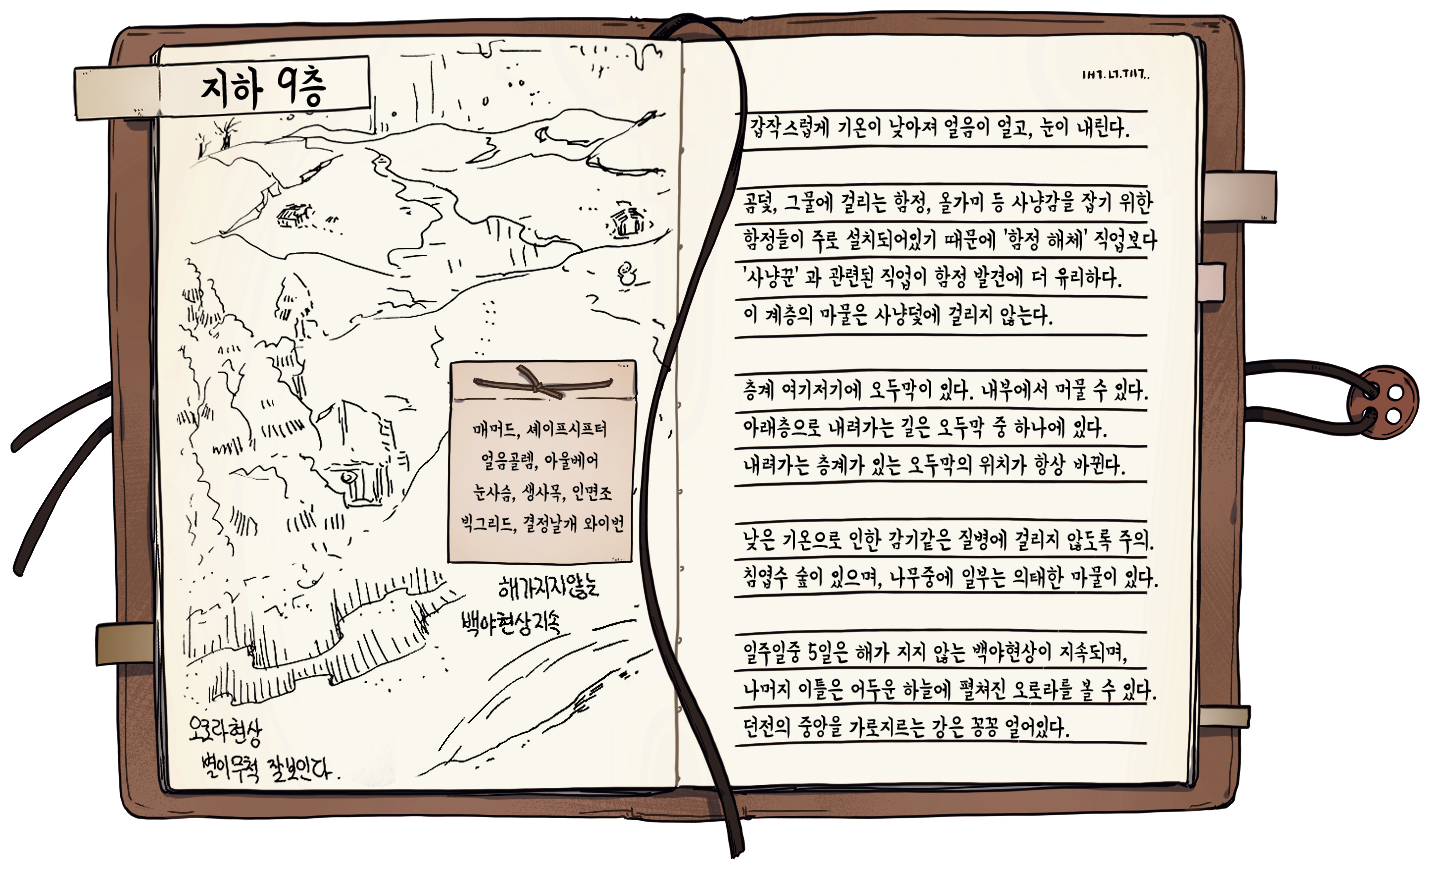 지하 9층
매머드, 셰이프시프터
얼음골렘, 아울베어
눈사슴, 생사목, 인면조
빅그리드, 결정날개 와이번
해가지지않는
백야현상지속
오로라현상
별이무척 잘보인다.
갑작스럽게 기온이 낮아져 얼음이 얼고, 눈이 내린다.
곰덫, 그물에 걸리는 함정, 올가미 등 사냥감을 잡기 위한
함정들이 주로 설치되어있기 때문에 '함정 해체' 직업보다
'사냥꾼' 과 관련된 직업이 함정 발견에 더 유리하다.
이 계층의 마물은 사냥덫에 걸리지 않는다.
층계 여기저기에 오두막이 있다. 내부에서 머물 수 있다.
아래층으로 내려가는 길은 오두막 중 하나에 있다.
내려가는 층계가 있는 오두막의 위치가 항상 바뀐다.
낮은 기온으로 인한 감기같은 질병에 걸리지 않도록 주의.
침엽수 숲이 있으며, 나무중에 일부는 의태한 마물이 있다.
일주일중 5일은 해가 지지 않는 백야현상이 지속되며,
나머지 이틀은 어두운 하늘에 펼쳐진 오로라를 볼 수 있다.
던전의 중앙을 가로지르는 강은 꽁꽁 얼어있다.